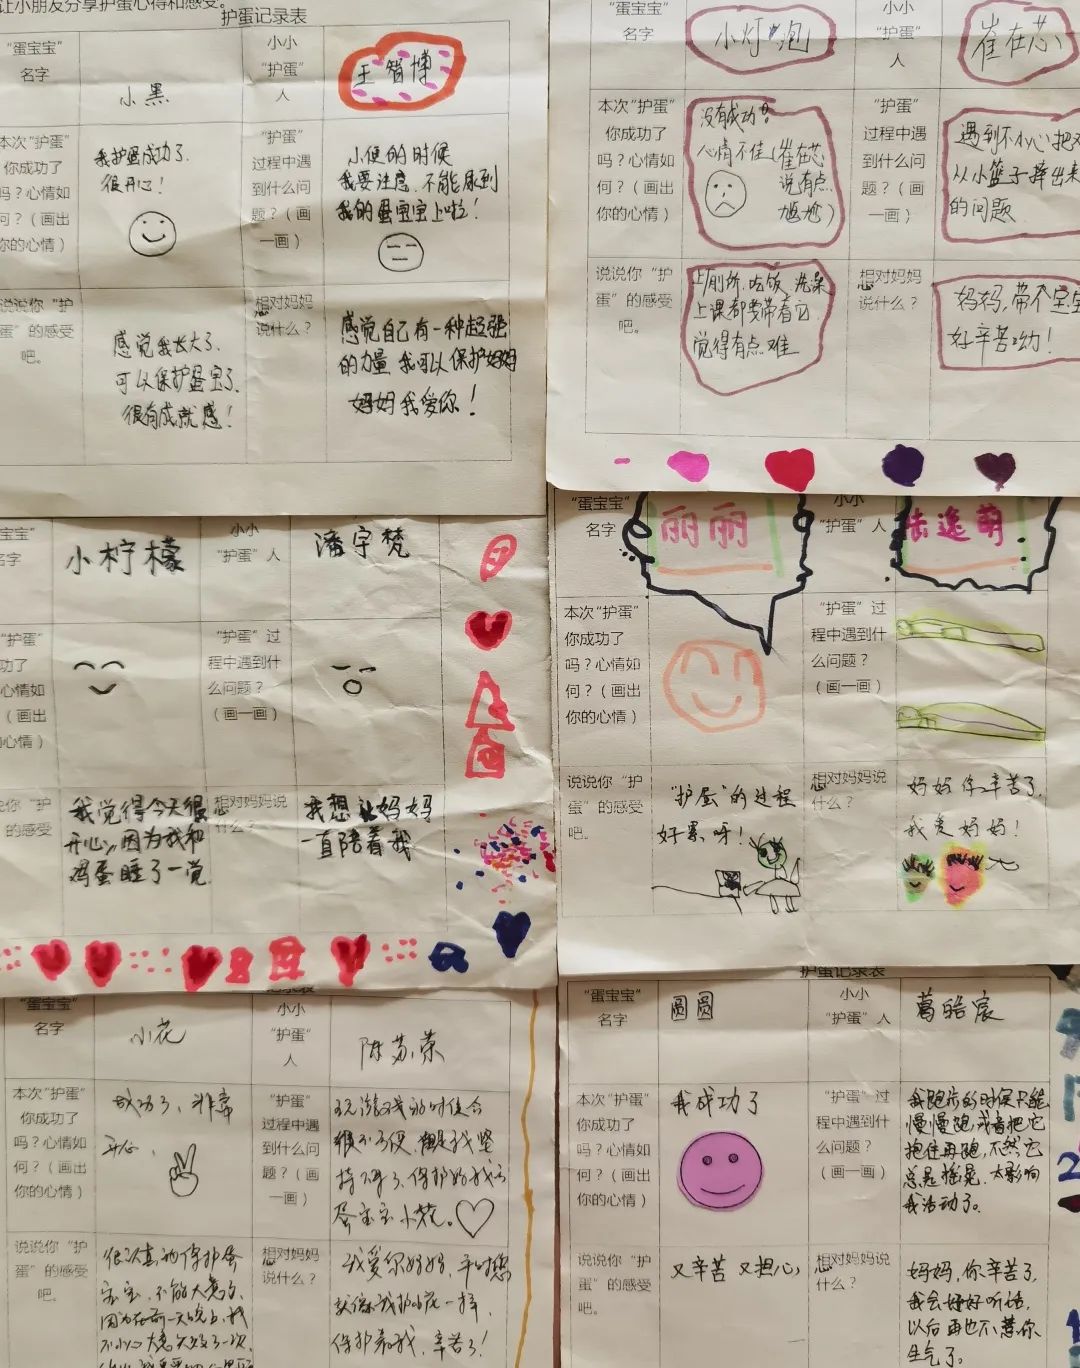 让小朋友分享护蛋心得和感受。
护蛋记录表
"蛋宝宝"
名字
小黑
小小
"护蛋"
人
王智博
本次"护蛋"
你成功了
吗？心情如
何？（画出
你的心情）
我护蛋成功了.
很开心！
"护蛋"
过程中遇
到什么问
题？（画
一画）
小便的时候
我要注意.不能尿到
我的蛋宝宝上啦！
说说你"护
蛋"的感受
吧。
感觉我长大了.
可以保护蛋宝了.
很有成就感！
想对妈妈
说什么？
感觉自己有一种超强
的力量.我可以保护妈妈
妈妈我爱你！
"蛋宝宝"
名字
小灯泡
小小
"护蛋"
人
崔在芯
本次"护蛋"
你成功了
吗？心情如
何？（画出
你的心情）
没有成功？
心情不佳（崔在芯
说有点
尴尬）
"护蛋"
过程中遇
到什么问
题？（画
一画）
遇到不小心把
从小篮子摔出来
的问题
说说你"护
蛋"的感受
吧。
上厕所.吃饭、洗澡
上课都要带着它
觉得有点难
想对妈妈
说什么？
妈妈,带个宝宝
好辛苦呦！
宝宝"
名字
小柠檬
小小
"护蛋"人
潘宇梵
"护蛋"
功了
心情如
（画出
心情）
"护蛋"过
程中遇到什
么问题？
（画一画）
你"护
的感受
我觉得今天很
开心，因为我和
鸡蛋睡了一觉
想对妈妈说
什么？
我想让妈妈
一直陪着我
"蛋宝宝"
名字
丽丽
小小
"护蛋"人
陆逸萌
本次"护蛋"
你成功了
吗？心情如
何？（画出
你的心情）
"护蛋"过
程中遇到什
么问题？
（画一画）
说说你"护
蛋"的感受
吧。
"护蛋"的过程
好累呀！
想对妈妈说
什么？
妈妈你辛苦了.
我爱妈妈！
"蛋宝宝"
名字
小花
小小
"护蛋"
人
陈苏荣
本次"护蛋"
你成功了
吗？心情如
何？（画出
你的心情）
成功了、非常
开心.
"护蛋"
过程中遇
到什么问
题？（画
一画）
玩游戏的时候会
很不方便，但是我坚
持下来了、保护好我的
蛋宝宝小花。
说说你"护
蛋"的感受
吧。
很认真地保护蛋
宝宝，不能大意的
因为在前一天晚上,我
不小心大意
想对妈妈
说什么？
我爱你妈妈，平时您
就像我护小花一样,
保护着我，辛苦了！
护蛋记录表
"蛋宝宝"
名字
圆圆
小小
"护蛋"人
葛皓宸
本次"护蛋"
你成功了
吗？心情如
何？（画出
你的心情）
我成功了
"护蛋"过
程中遇到什
么问题？
（画一画）
我跑步的时候只能
慢慢跑或者把它
抱住再跑，不然它
总是摇晃.太影响
我活动了。
说说你"护
蛋"的感受
吧。
又辛苦 又担心
想对妈妈说
什么？
妈妈，你辛苦了，
我会好好听话，
以后再也不惹你
生气了。